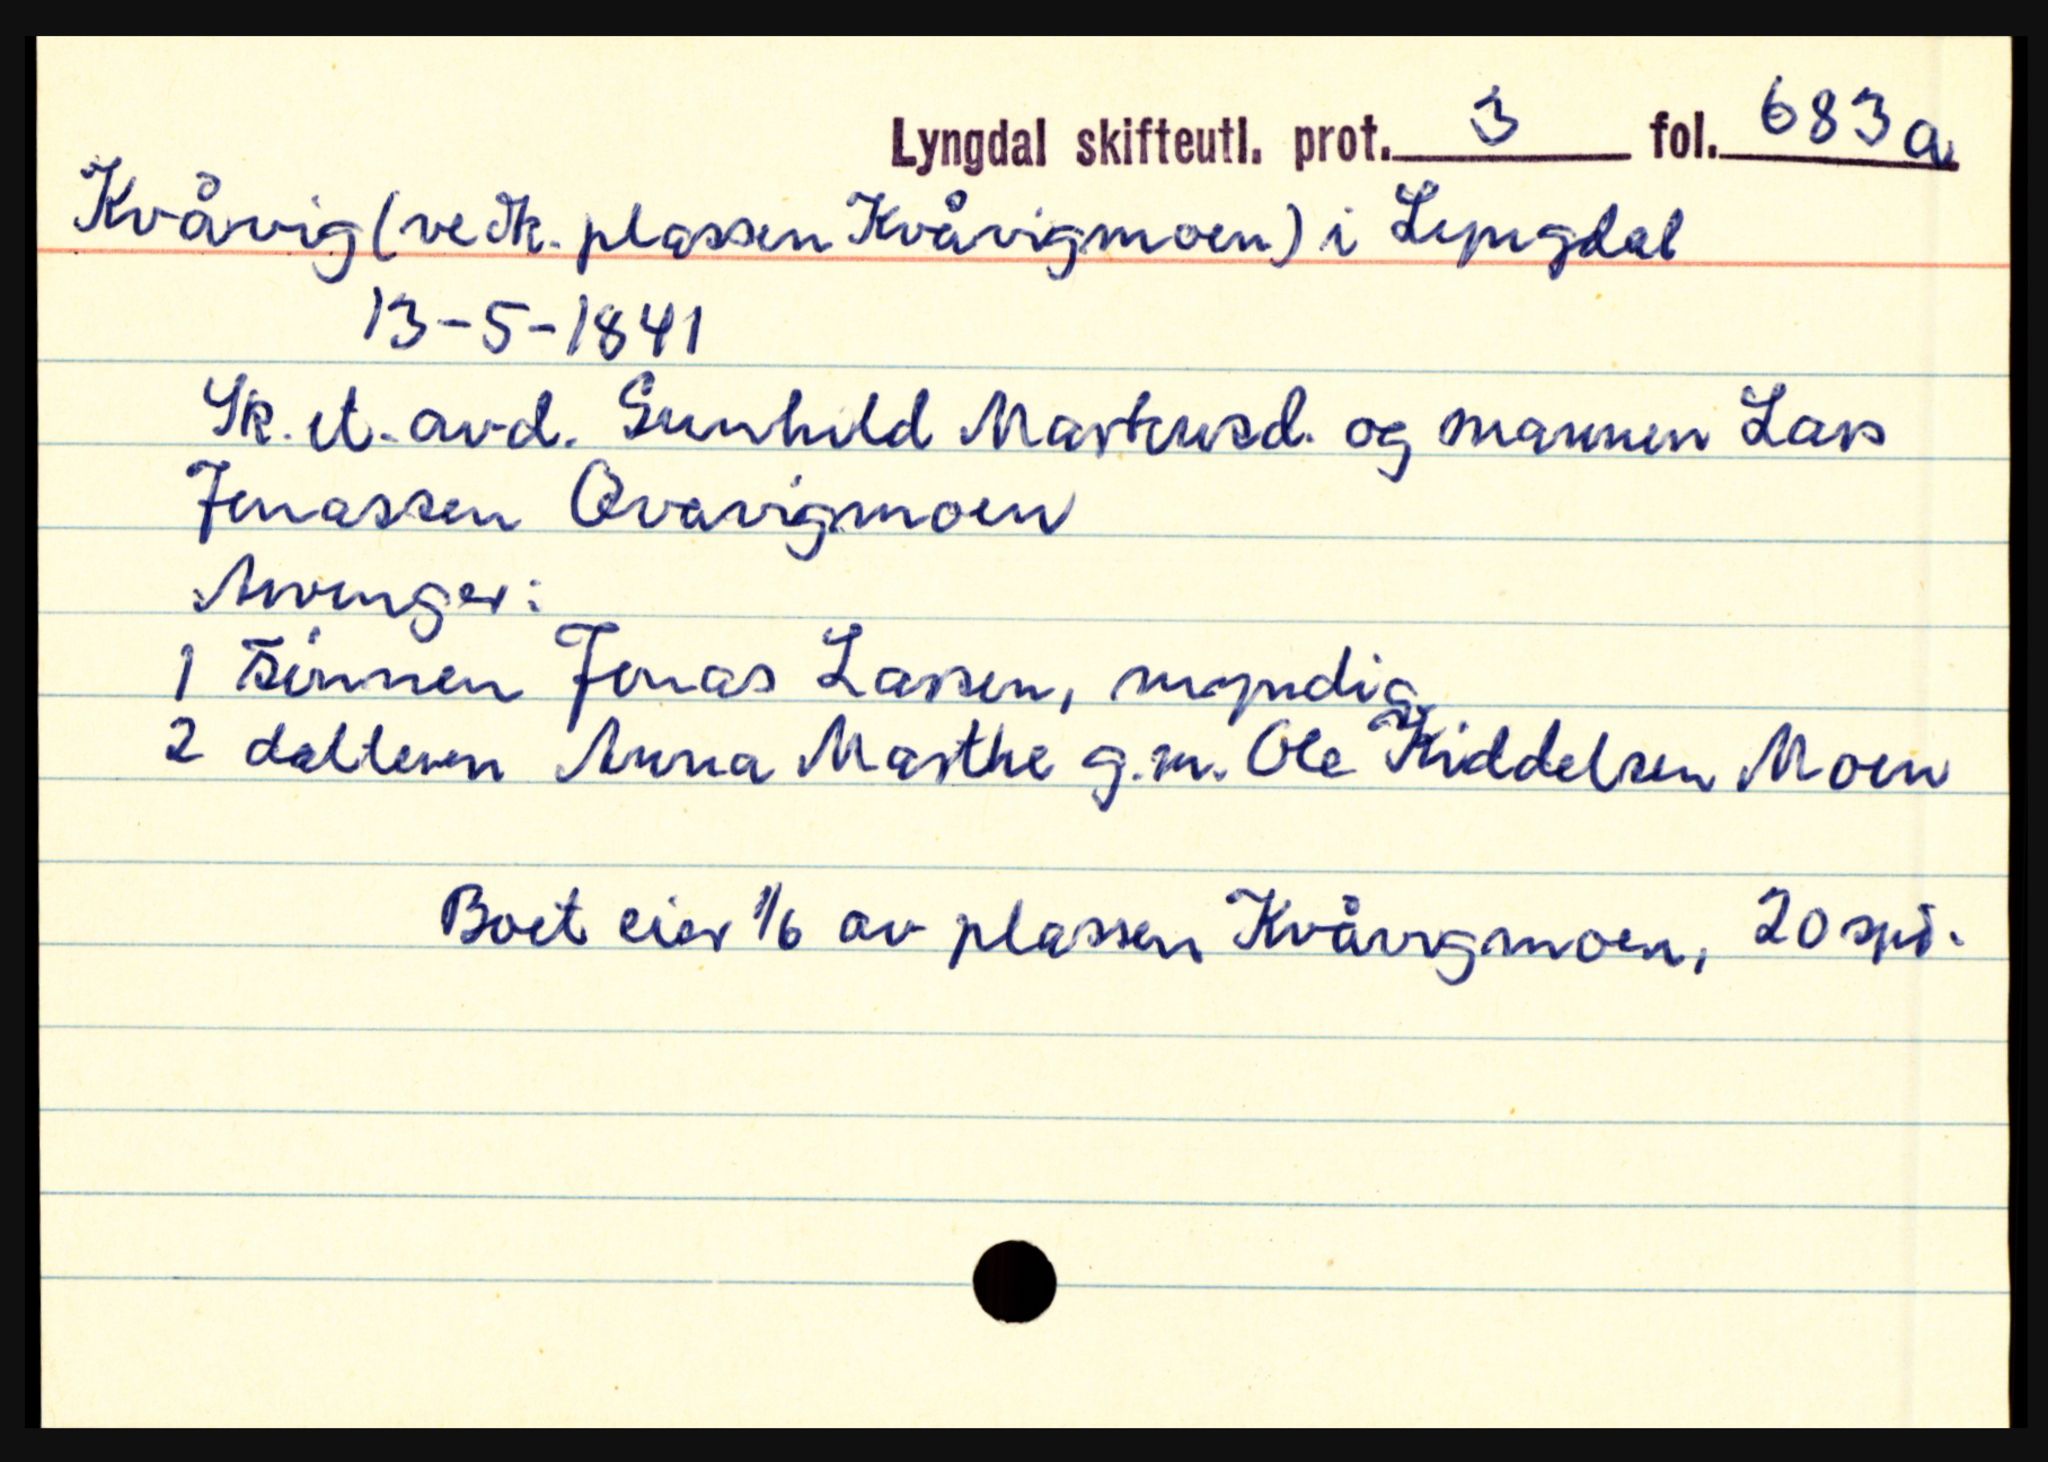 Lyngdal skifteutl. prot. 3 fol. 683a
Kvåvig (vedk. plassen Kvåvigmoen) i Lyngdal
13-5-1841
Sk. et. avd. Gunhild Markusd. og mannen Lars
Jonassen Qvavigmoen
Arvinger:
1 sønnen Jonas Larsen, myndig
2 datteren Anna Marthe g.m. Ole Kiddelsen Moen
Boet eier 1/6 av plassen Kvåvigmoen, 20 spd.